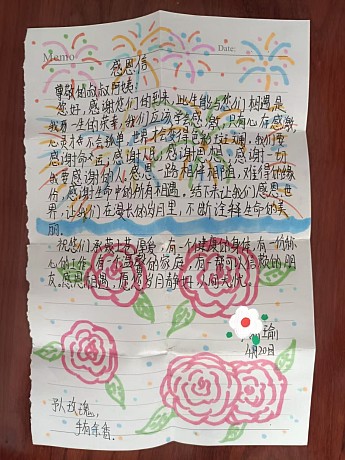 Memo
Date:
感恩信
尊敬的叔叔阿姨:
您好,感谢您们的到来,此生能与您们相遇是
我一生的荣幸,我们应该学会感激,只有心存感激,
心灵才不会孤单,世界才会变得色彩斑斓,我们要
感谢命运,感谢人民,感谢思想,感谢一切
我要感谢的人,感恩一路相伴相随,难得的缘
份,感谢生命中的所有相遇。结下来让我们感恩世
界,让我们在漫长的岁月里,不断诠释生命的美
丽。
祝您们承蒙上苍厚爱,有一个健康的身体,有一份称
心的工作,有一个温馨的家庭,有一帮可以信赖的朋
友。感恩相遇,愿您岁月静好,从何无忧。
瑜
4月20日
予人玫瑰,
手有余香。